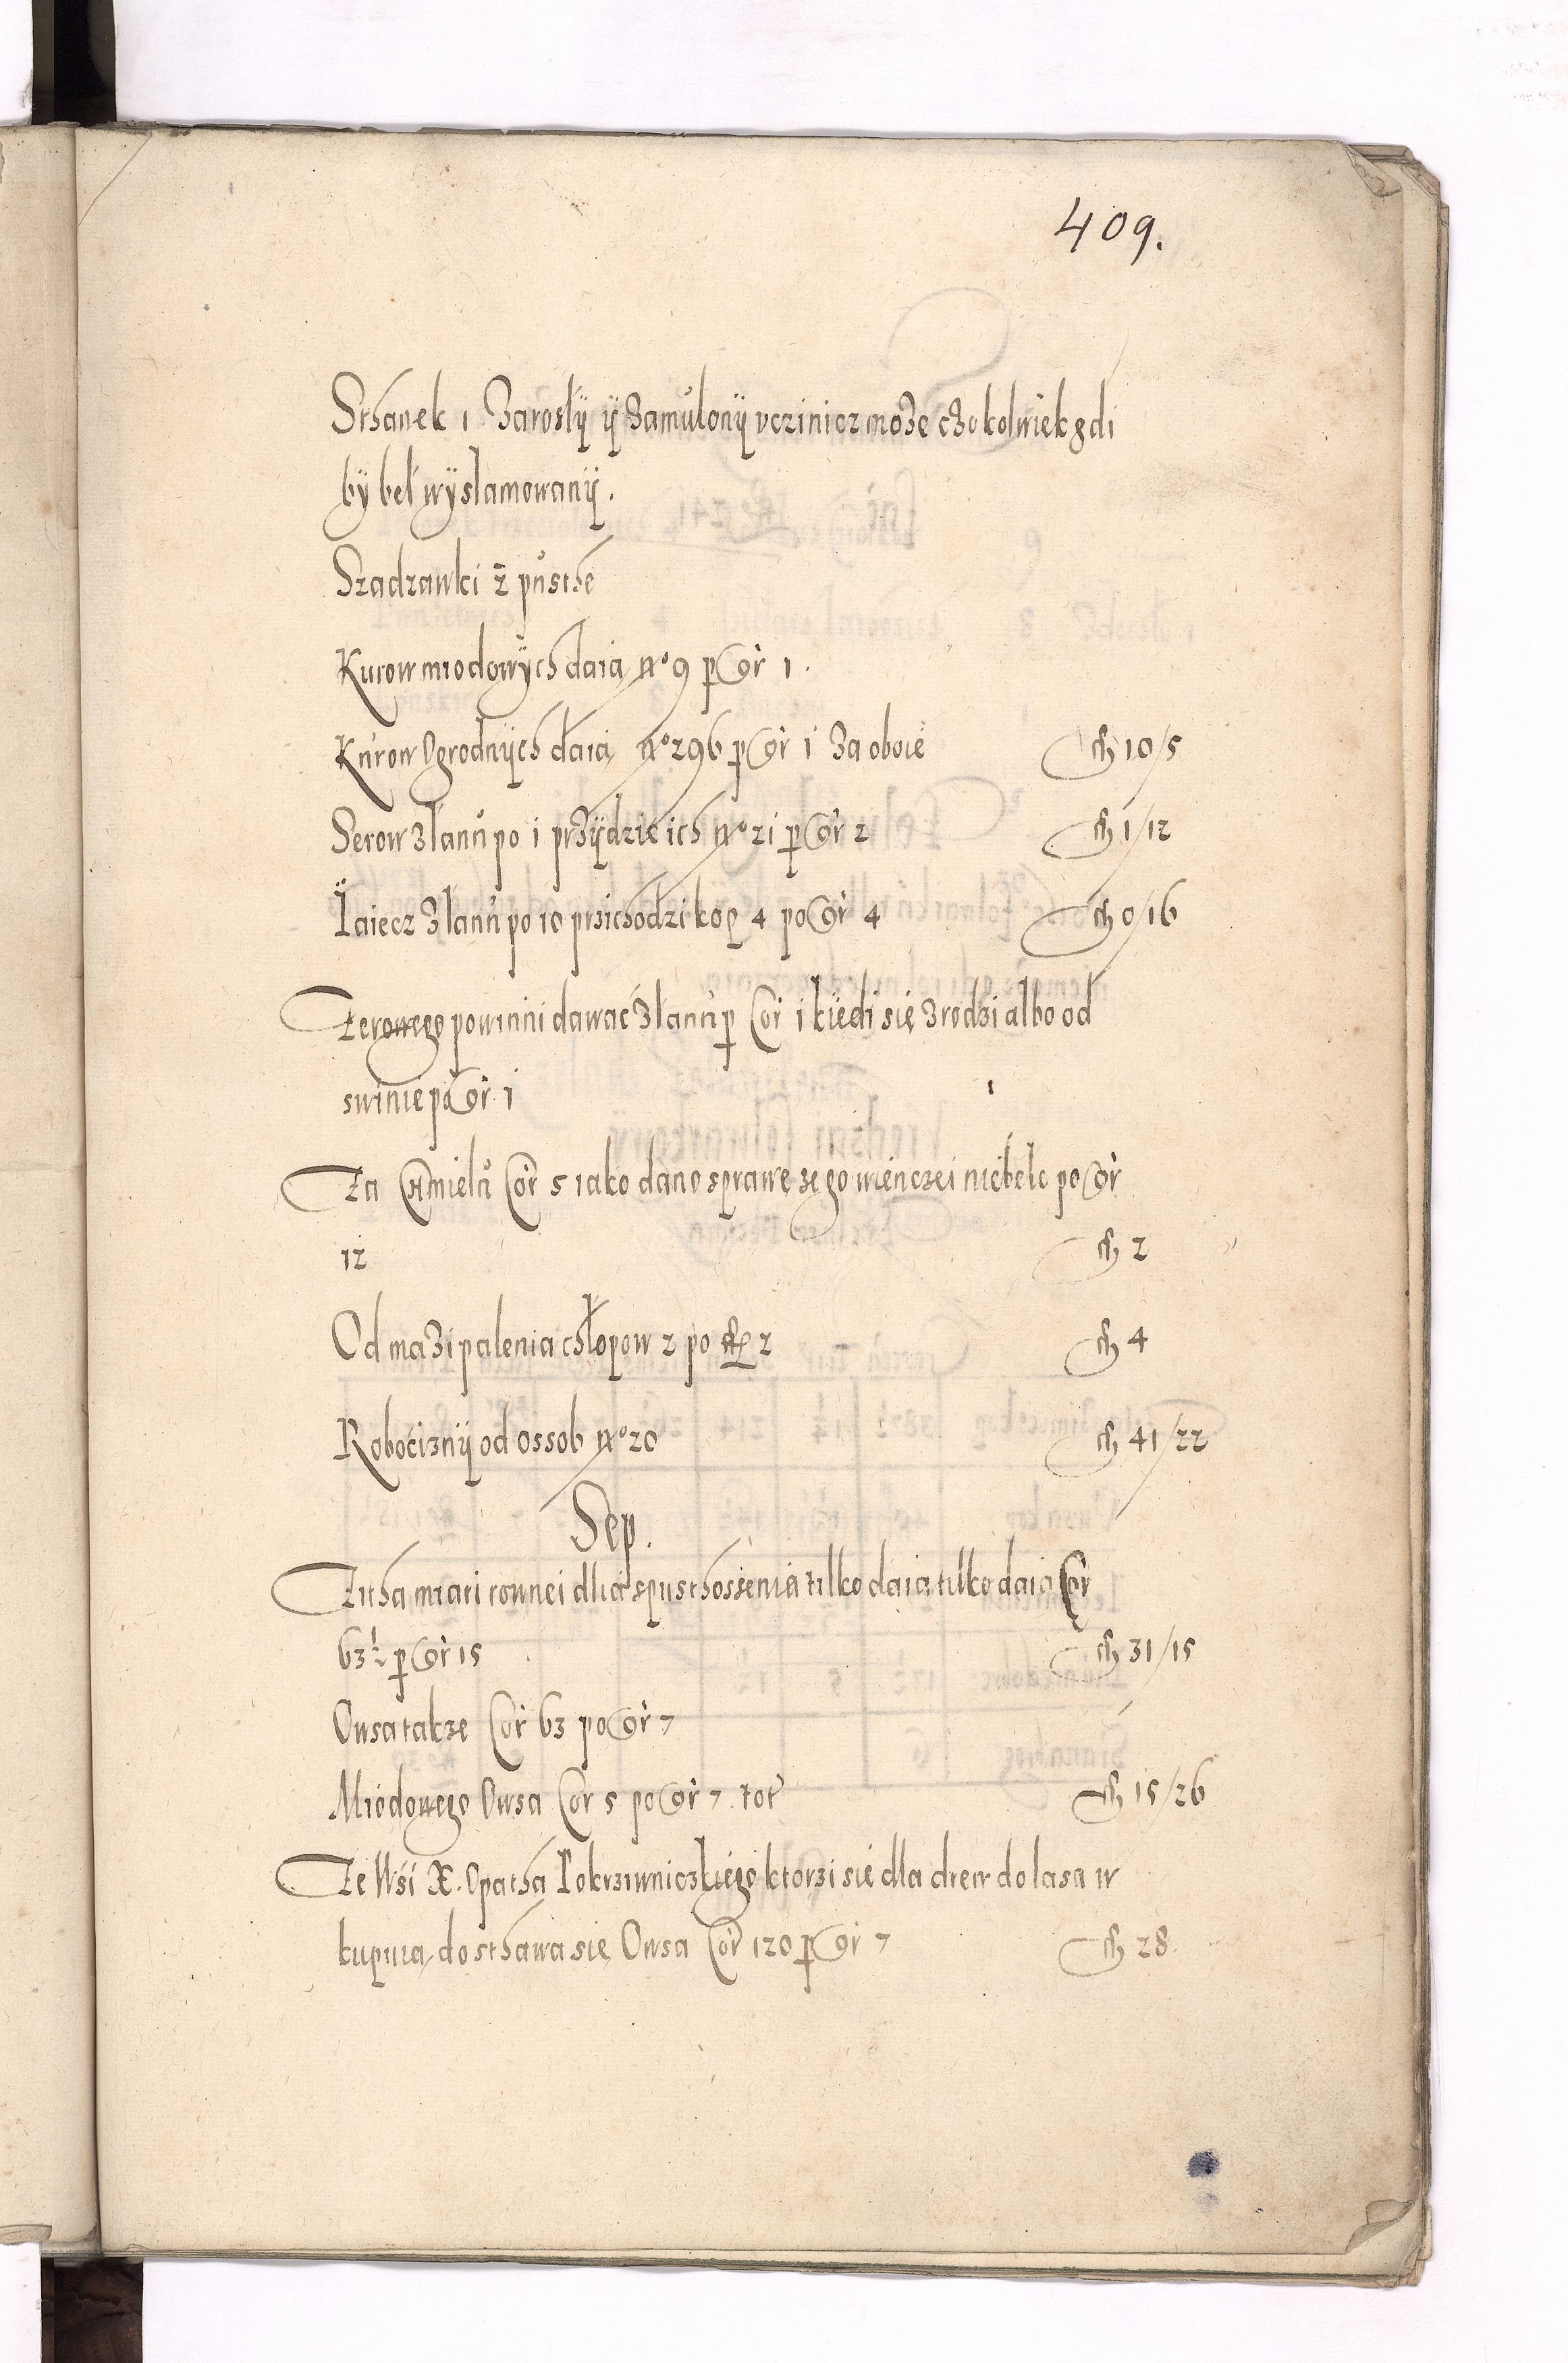 409.
Sthanek 1 Zarosły ÿ Zamulonÿ vcziniczmoże czokolwiek gdi
bÿ beł wÿslamowanÿ.
Szadzawki 2 pusthe
Kurow miodowÿch daią nº 9 p gr 1.
Kurow Ogrodnÿch daią nº 296 p gr 1 Za oboie fl 10/5
Serow z łanu po 1 przÿdzie ich nº 21 p gr 2 fl 1/12
Iaiecz z łanu po 10 przichodzi kop 4 po gr 4 fl 0/16
Żerowego powinni dawać z łanu p Cor 1 kiedi się zrodzi albo od
swinie po gr 1
Za Chmielu Cor 5 iako dano sprawe ze go wienczei niebeło po gr
12 fl 2
Od mazi palenia chłopow 2 po fl 2 fl 4
Robociznÿ od ossob nº 20 fl 41/22
Sep.
Zitha miari rownei dlia spusthoszenia tilko daia tilko daia Cor
63½ p gr 15 fl 31/15
Owsa takze Cor 63 po gr 7
Miodowego Owsa Cor 5 po gr 7 tot fl 15/26
Ze Wśi X. Opatha Pokrziwniczkiego ktorzi sie dla drew do lasa w
kupuią dosthawa się Owsa Cor 120 p gr 7 fl 28